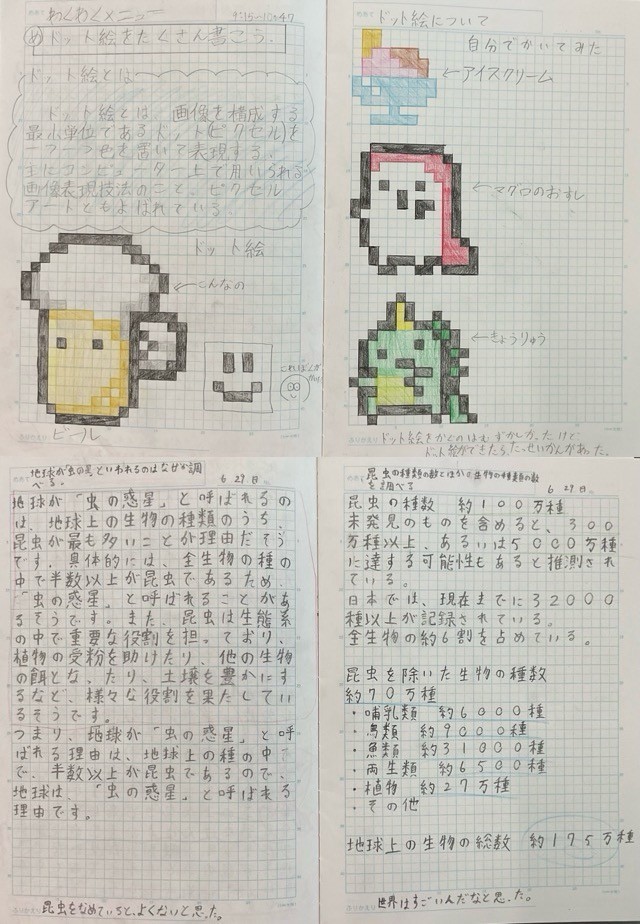 わくわくメニュー
9:15~10:47
め ドット絵をたくさん書こう。
ドット絵とは
ドット絵とは、画像を構成する
最小単位であるドット(ピクセル)を
一つ一つ色を置いて表現する、
主にコンピューター上で用いられる
画像表現技法のこと。ピクセル
アートともよばれている。
ドット絵
←こんなの
ビール
ドット絵について
自分でかいてみた
←アイスクリーム
←マグロのおすし
←きょうりゅう
ふりかえり ドット絵をかくのはむずかしかったけど
ドット絵ができたらたっせいかんがあった。
地球が「虫の星」といわれるのはなぜか調
べる。
6 29日
地球が「虫の惑星」と呼ばれるの
は、地球上の生物の種類のうち、
昆虫が最も多いことが理由だそう
です。具体的には、全生物の種の
中で半数以上が昆虫であるため、
「虫の惑星」と呼ばれることがあ
るそうです。また、昆虫は生態系
の中で重要な役割を担っており、
植物の受粉を助けたり、他の生物
の餌となったり、土壌を豊かにす
るなど、様々な役割を果たしてい
るそうです。
つまり、地球が「虫の惑星」と呼
ばれる理由は、地球上の種の中
で、半数以上が昆虫であるので、
地球は、「虫の惑星」と呼ばれる
理由です。
ふりかえり 昆虫をなめていると、よくないと思った。
昆虫の種類の数とほかの生物の種類の数
を調べる
6 29日
昆虫の種数 約100万種
未発見のものを含めると、300
万種以上、あるいは5000万種
に達する可能性もあると推測され
ている。
日本では、現在までに32000
種以上が記録されている。
全生物の約6割を占めている。
昆虫を除いた生物の種数
約70万種
・哺乳類 約6000種
・鳥類 約9000種
・魚類 約31000種
・両生類 約6500種
・植物 約27万種
・その他
地球上の生物の総数 約175万種
ふりかえり 世界はすごいんだなと思った。